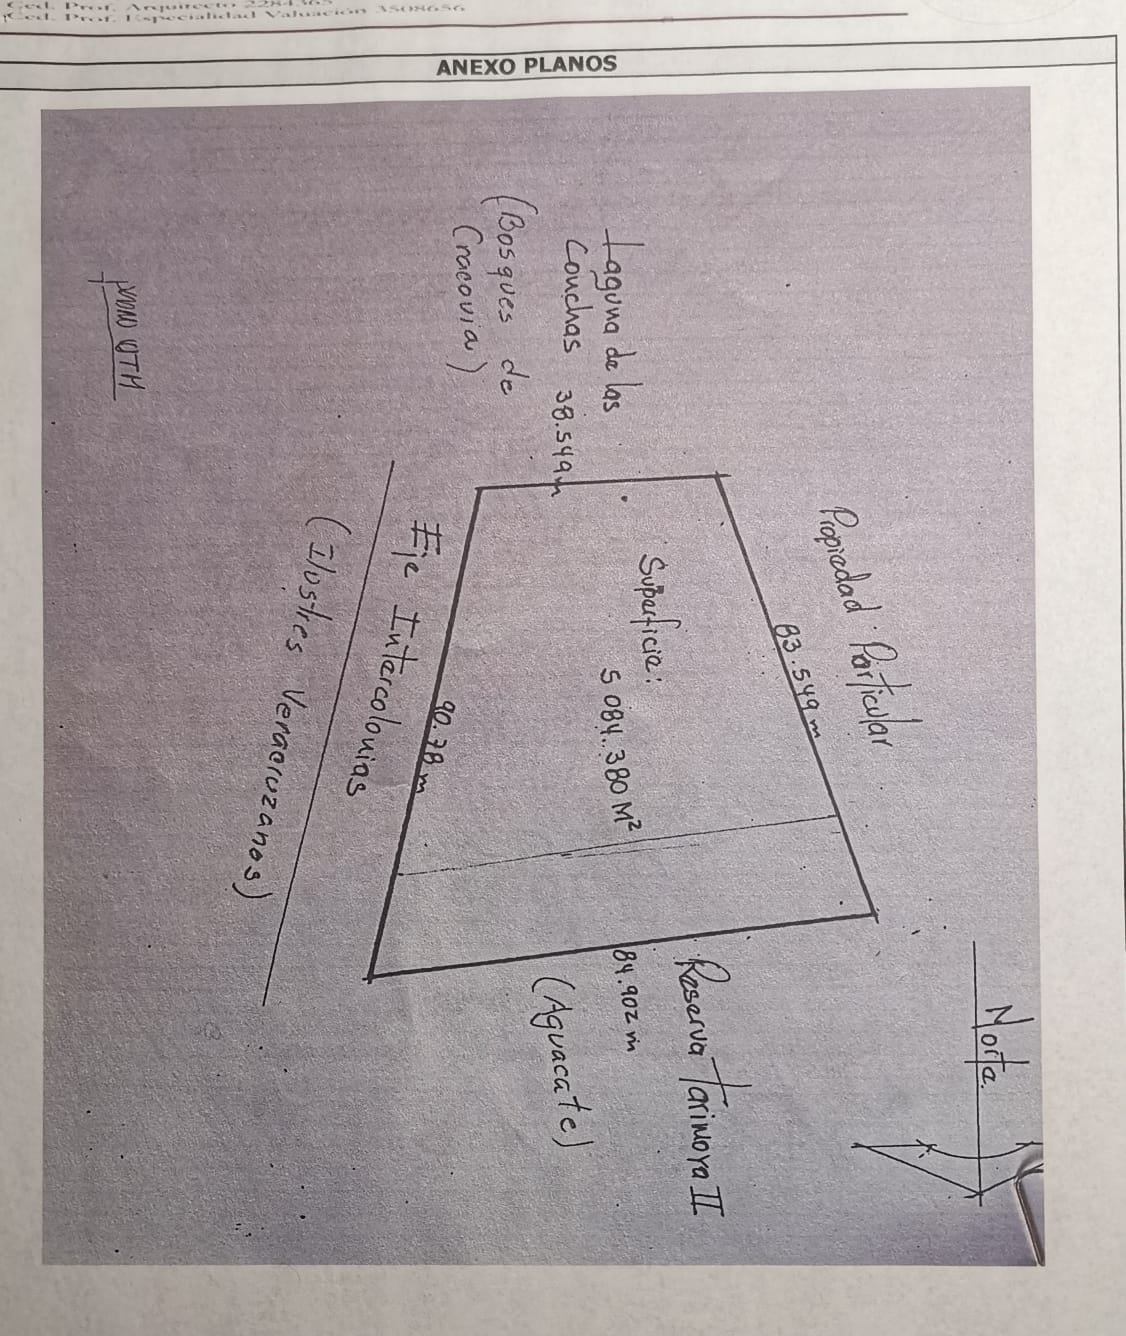 Ced. Prof. Arquitecto 2284365
Ced. Prof. Especialidad Valuación 3508656
ANEXO PLANOS
Norte
Propiedad Particular
83.549 m
Laguna de las
Conchas 38.549 m
(Bosques de
Cracovia)
Superficie:
5 084.380 M²
Reserva Tarimoya II
84.902 m
(Aguacate)
90.78 m
Eje Intercolonias
(Ilustres Veracruzanos)
UTM